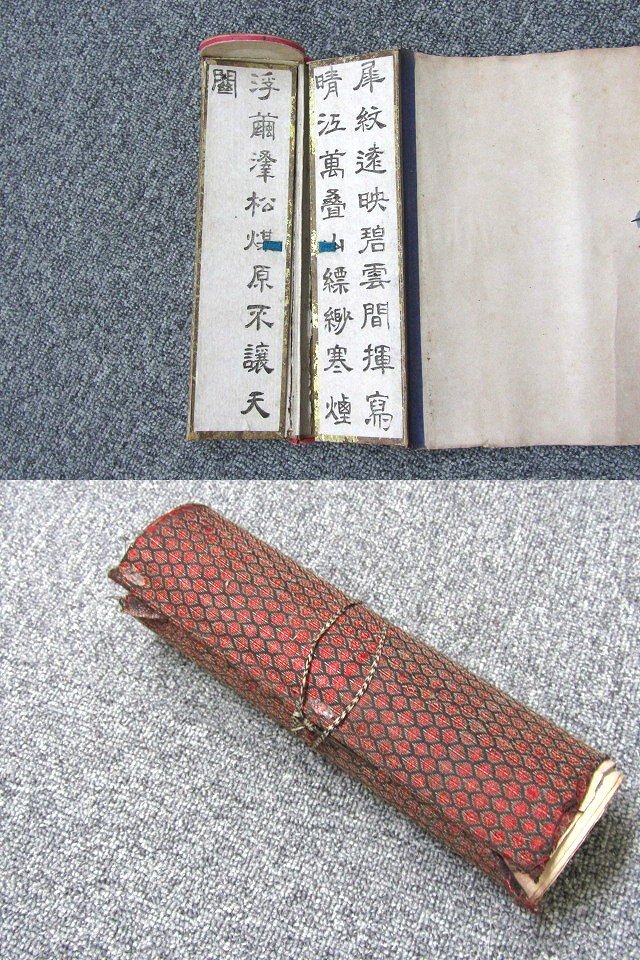 犀紋遠映碧雲間揮寫
晴江萬叠山縹緲寒煙
浮繭澤松煤原不讓天